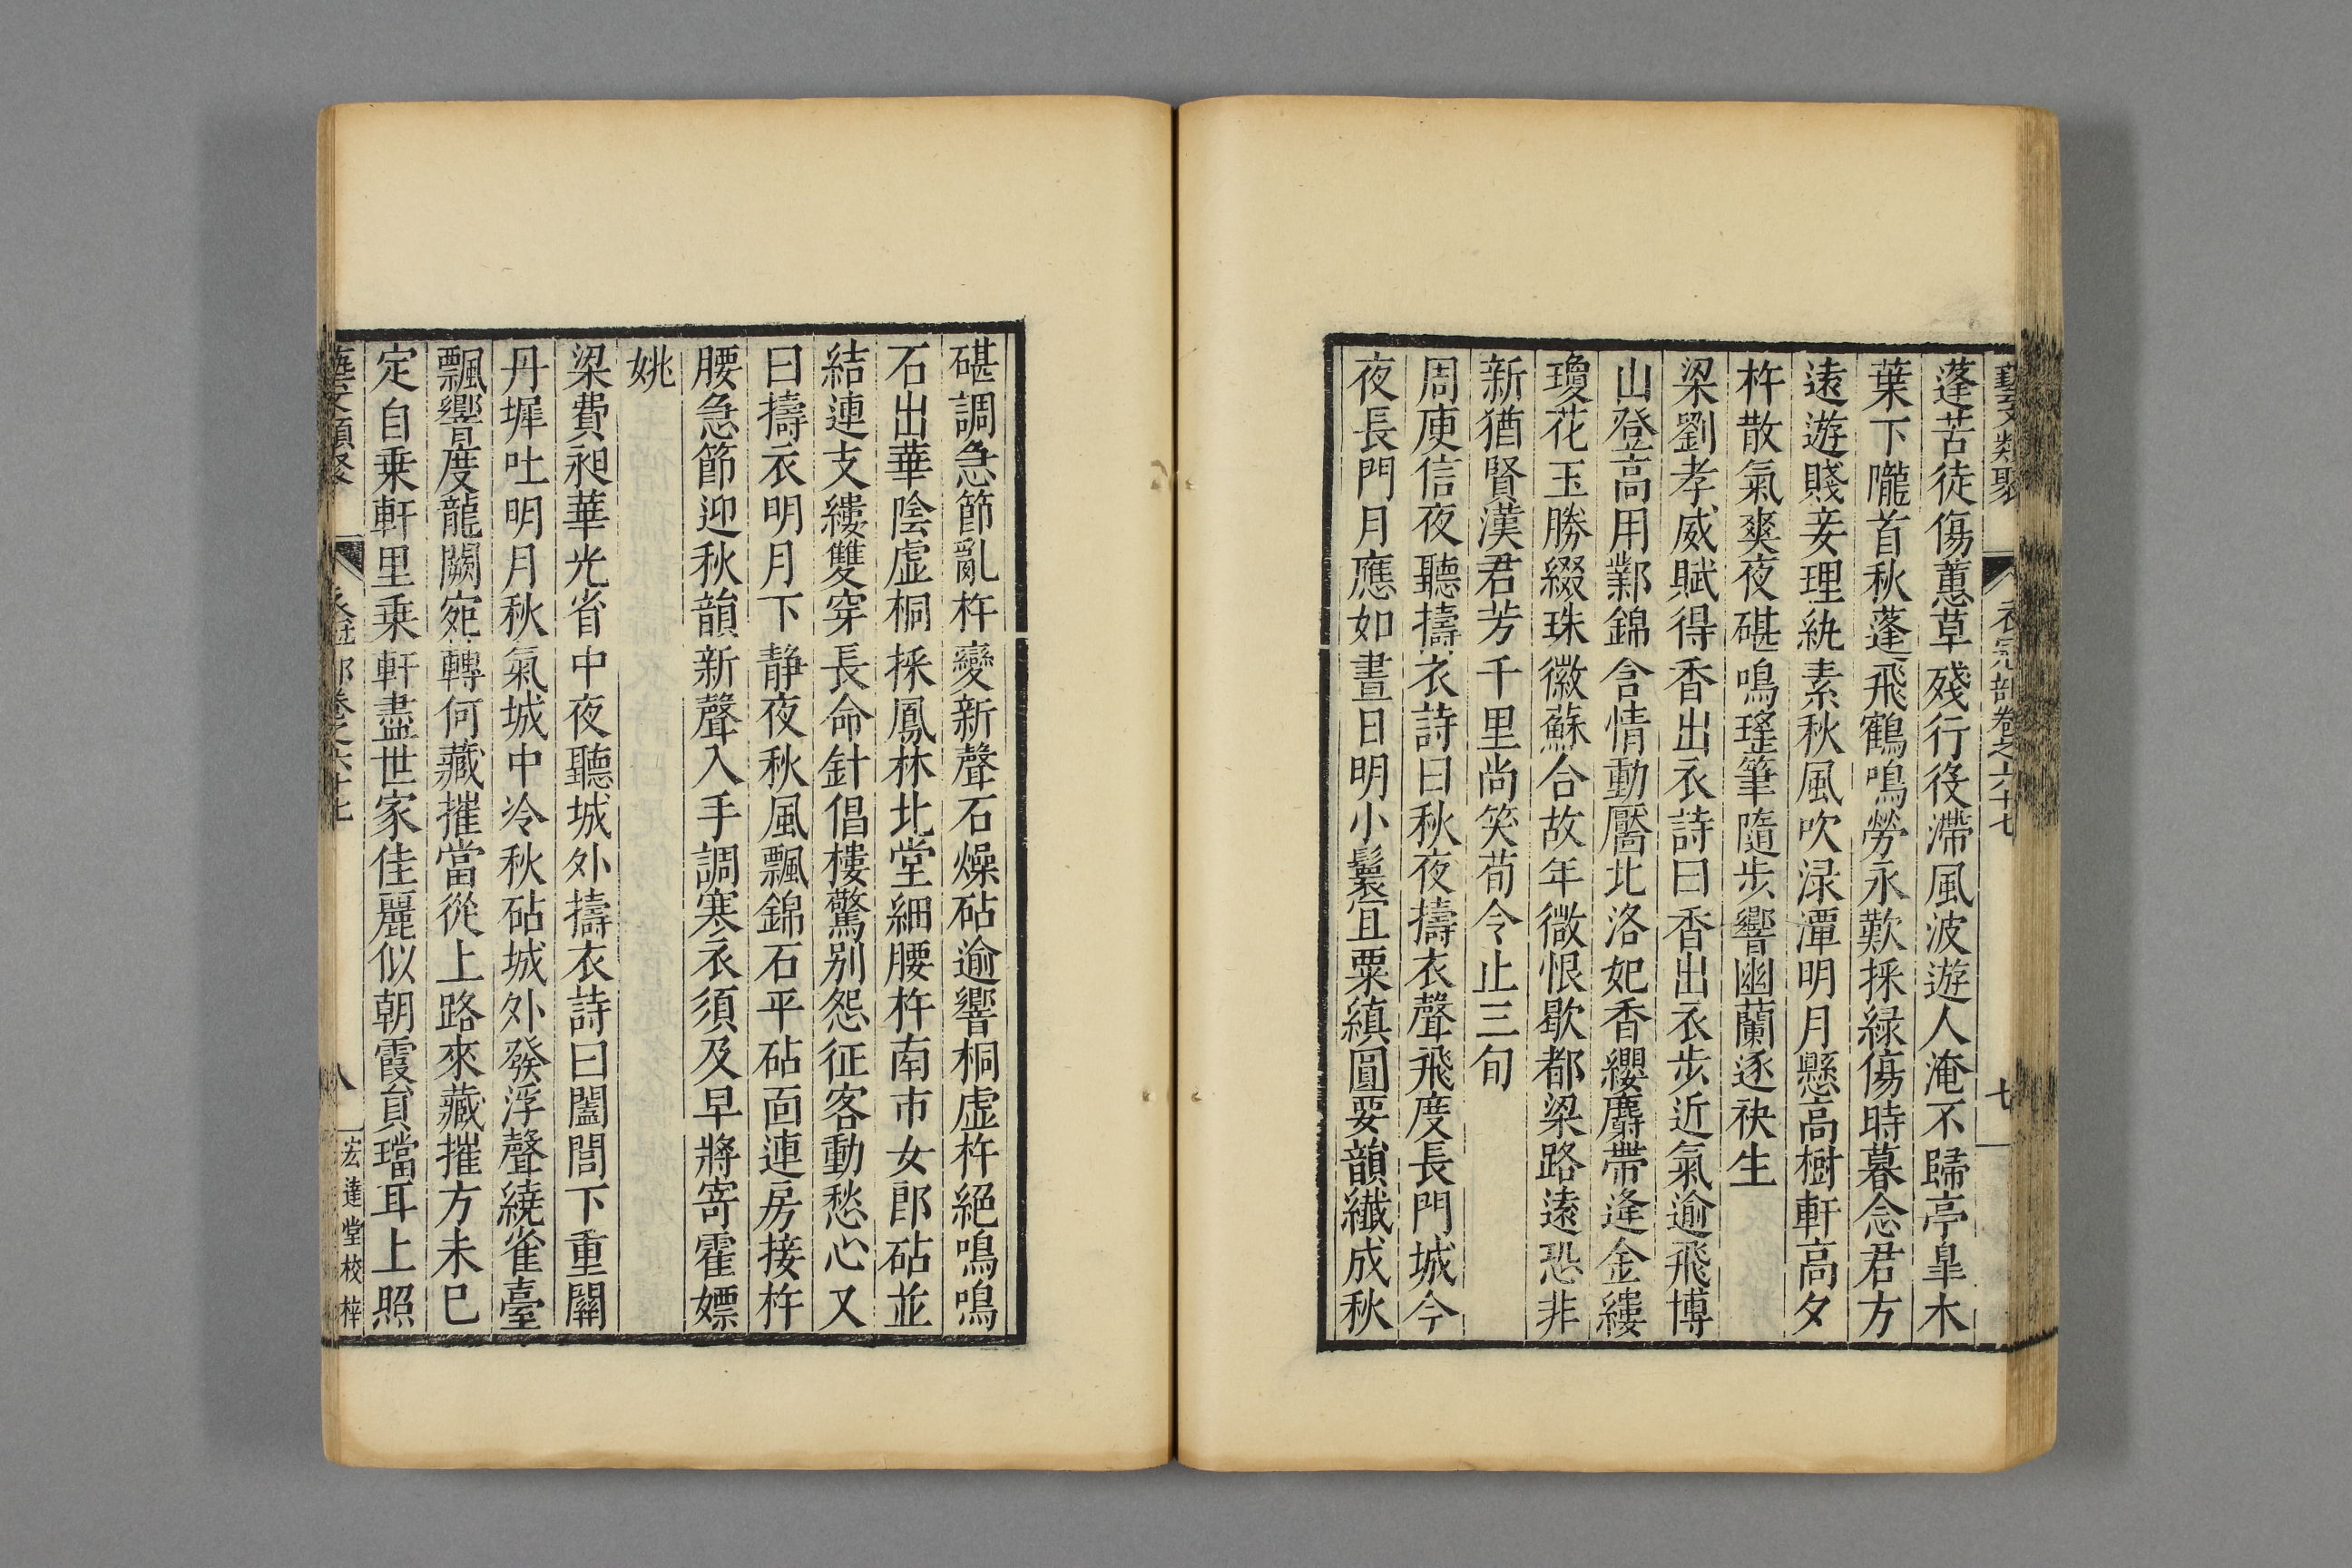 藝文類聚 衣冠部卷之六十七 七
蓬苦徒傷蕙草殘行役滯風波遊人淹不歸亭皐木
葉下隴首秋蓬飛鶴鳴勞永歎採緑傷時暮念君方
遠遊賤妾理紈素秋風吹渌潭明月懸高樹軒高夕
杵散氣爽夜碪鳴瑤筆隨步響幽蘭逐袂生
梁劉孝威賦得香出衣詩曰香出衣步近氣逾飛博
山登高用鄴錦含情動靨北洛妃香纓麝帶逢金縷
瓊花玉勝綴珠徽蘇合故年微恨歇都梁路遠恐非
新猶賢漢君芳千里尚笑荀令止三旬
周庾信夜聽擣衣詩曰秋夜擣衣聲飛度長門城今
夜長門月應如晝日明小鬟宜粟縝圓𦝫韻纎成秋
碪調急節亂杵變新聲石燥砧逾響桐虚杵絕鳴鳴
石出華陰虚桐採鳳林北堂細腰杵南市女郎砧並
結連支縷雙穿長命針倡樓驚别怨征客動愁心又
曰擣衣明月下静夜秋風飄錦石平砧面連房接杵
腰急節迎秋韻新聲入手調寒衣須及早將寄霍嫖
姚
梁費昶華光省中夜聽城外擣衣詩曰闔閭下重關
丹墀吐明月秋氣城中冷秋砧城外發浮聲繞雀臺
飄響度龍闕宛轉何藏摧當從上路來藏摧方未已
定自乗軒里乗軒盡世家佳麗似朝霞負璫耳上照
藝文類聚 衣冠部卷之六十七 八 宏達堂校梓